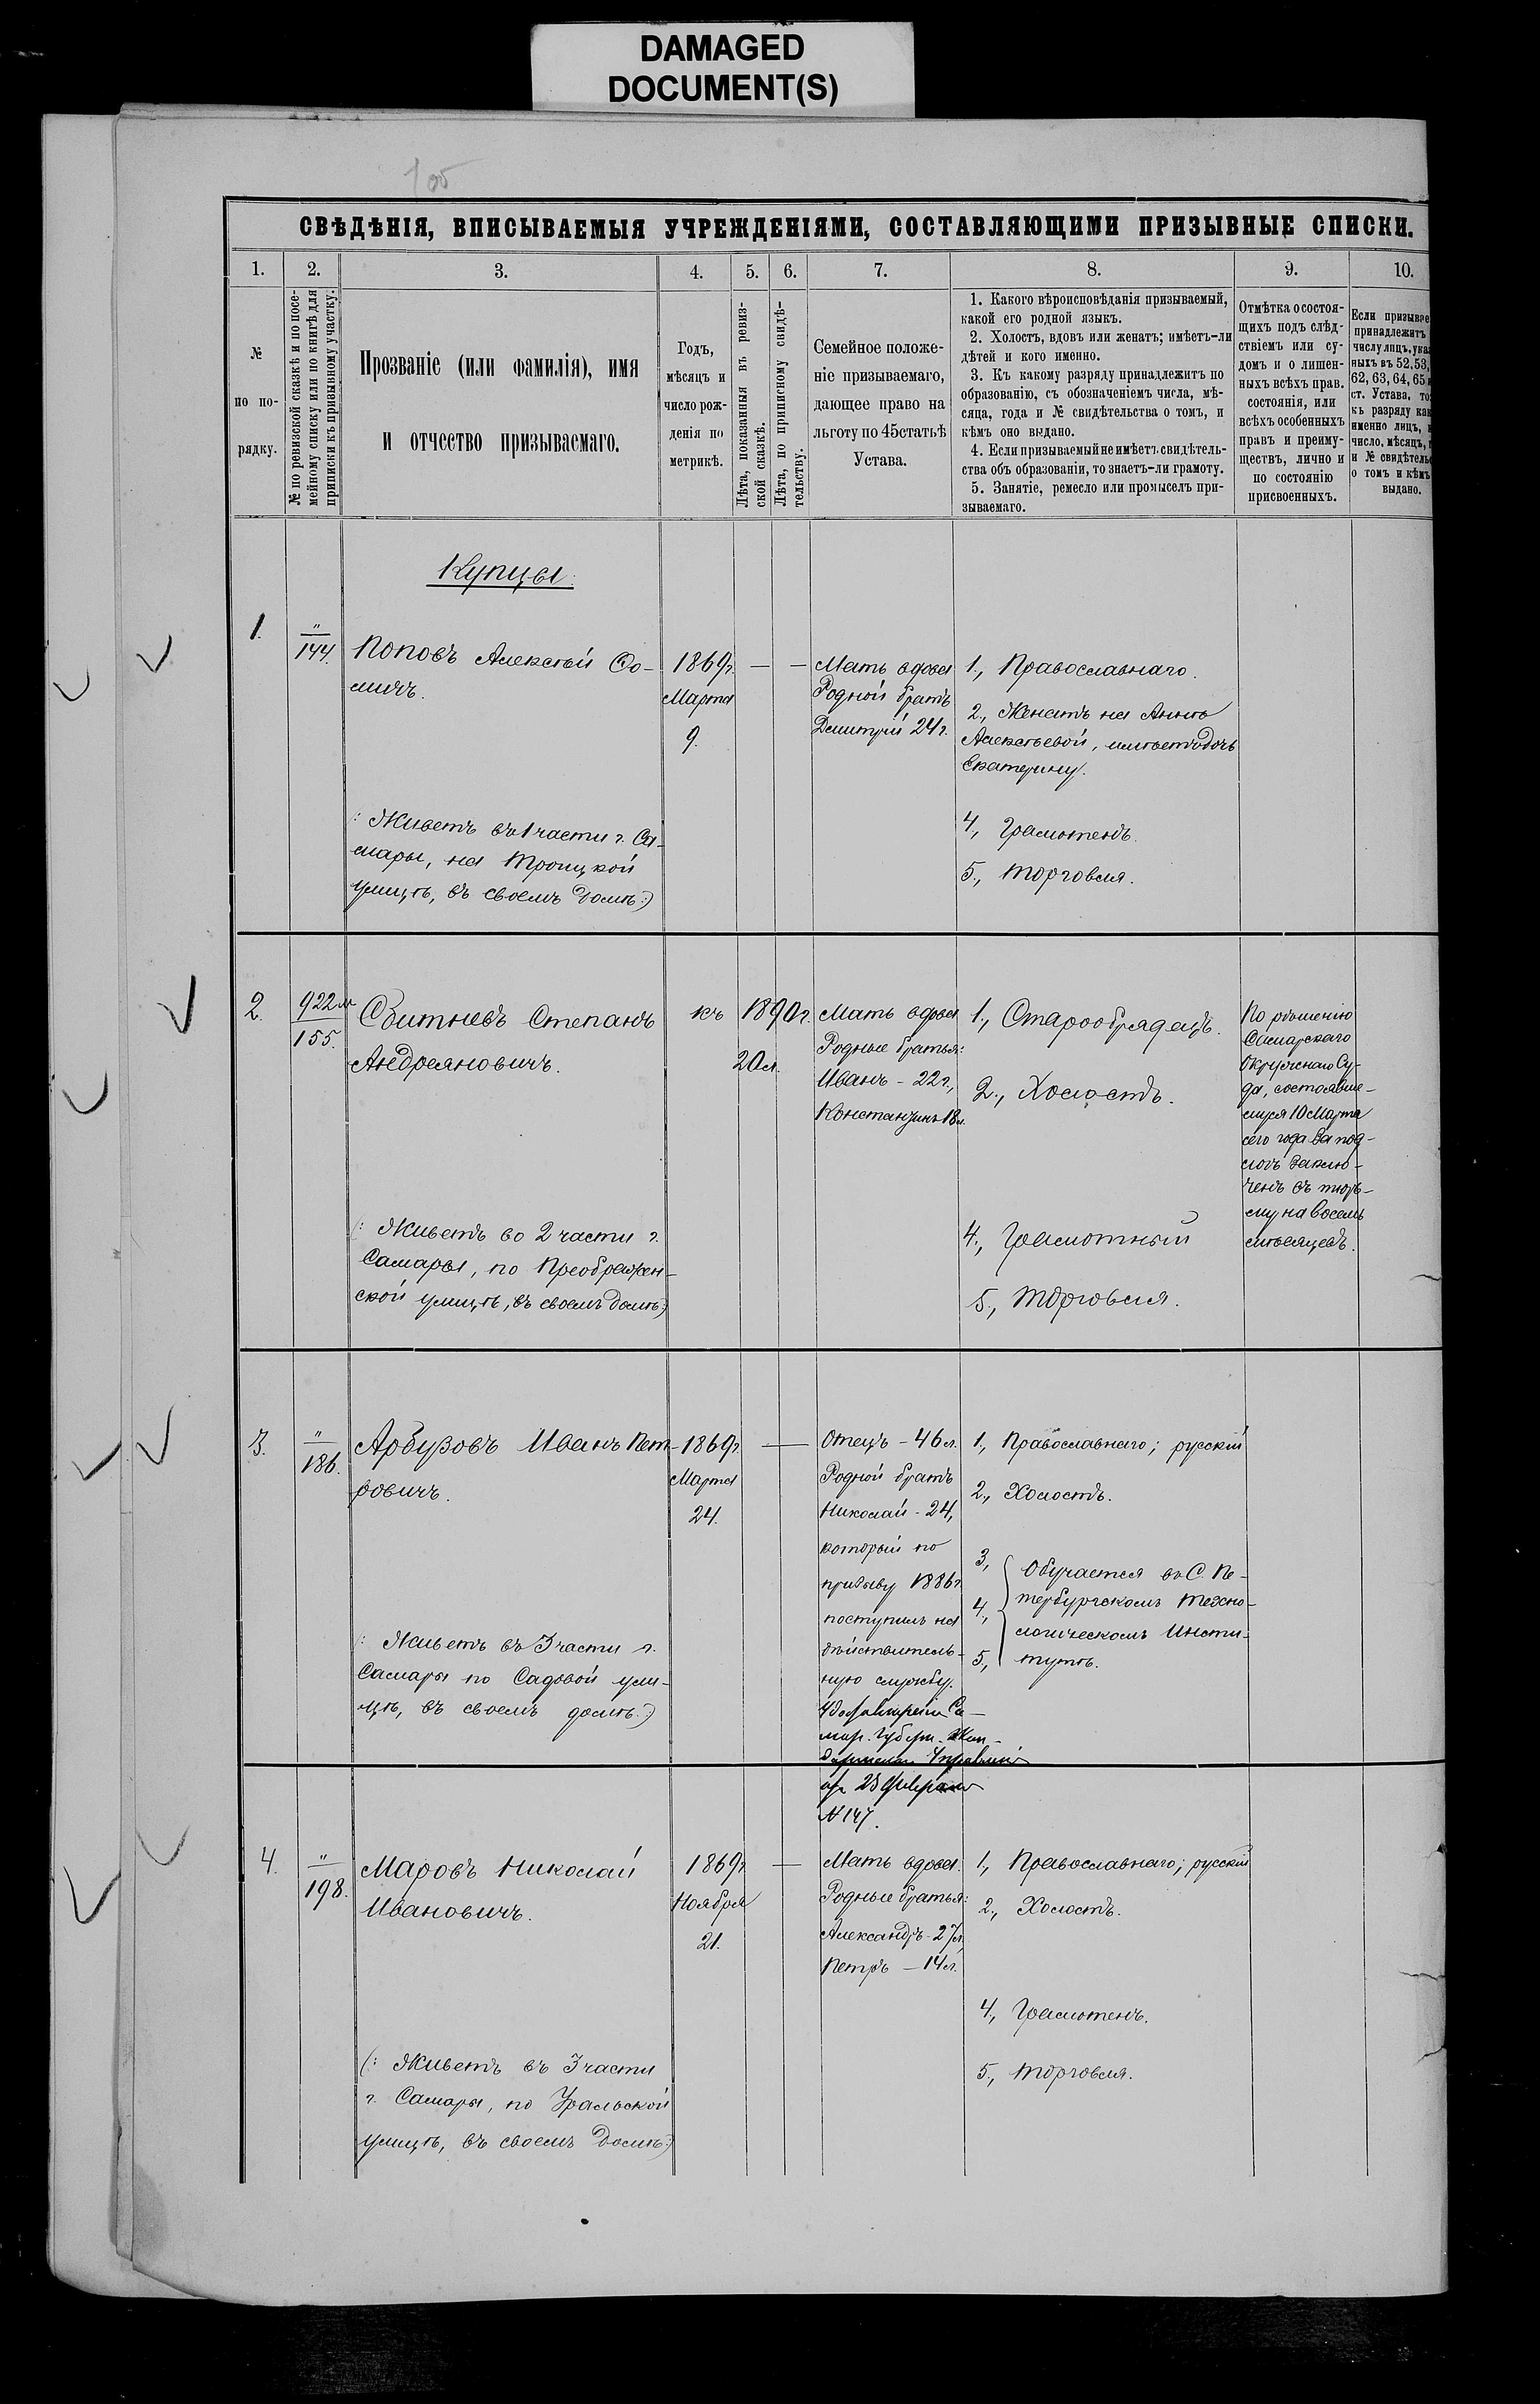 DAMAGED
DOCUMENT(S)
100
СВѢДѢНІЯ, ВПИСЫВАЕМЫЯ УЧРЕЖДЕНІЯМИ, СОСТАВЛЯЮЩИМИ ПРИЗЫВНЫЕ СПИСКИ.
1.
2.
3.
4.
5.
6.
7.
8.
9.
10.
№
по по-
рядку.
№ по ревизской сказкѣ и по посе-
мейному списку или по книгѣ для
приписки къ призывному участку.
Прозваніе (или фамилія), имя
и отчество призываемаго.
Годъ,
мѣсяцъ и
число рож-
денія по
метрикѣ.
Лѣта, показанныя въ ревиз-
ской сказкѣ.
Лѣта, по приписному свидѣ-
тельству.
Семейное положе-
ніе призываемаго,
дающее право на
льготу по 45 статьѣ
Устава.
1. Какого вѣроисповѣданія призываемый,
какой его родной языкъ.
2. Холостъ, вдовъ или женатъ; имѣетъ-ли
дѣтей и кого именно.
3. Къ какому разряду принадлежитъ по
образованію, съ обозначеніемъ числа, мѣ-
сяца, года и № свидѣтельства о томъ, и
кѣмъ оно выдано.
4. Если призываемый не имѣетъ свидѣтель-
ства объ образованіи, то знаетъ-ли грамоту.
5. Занятіе, ремесло или промыселъ при-
зываемаго.
Отмѣтка о состоя-
щихъ подъ слѣд-
ствіемъ или су-
домъ и о лишен-
ныхъ всѣхъ прав.
состоянія, или
всѣхъ особенныхъ
правъ и преиму-
ществъ, лично и
по состоянію
присвоенныхъ.
Если призывае
принадлежитъ
числу лицъ, ука
ныхъ въ 52, 53,
62, 63, 64, 65
ст. Устава, то
къ разряду как
именно лицъ,
число, мѣсяцъ,
и № свидѣтель
о томъ и кѣмъ
выдано.
Купцы:
1.
"
144.
Поповъ Алексѣй Ѳо-
мичъ.
1869 г.
Марта
9.
—
—
Мать вдова
Родной братъ
Дмитрій 24 г.
1., Православнаго.
2., Женатъ на Аннѣ
Алексѣевой, имѣетъ дочь
Екатерину.
4, Грамотенъ.
5., Торговля.
: Живетъ въ 1 части г. Са-
мары, на Троицкой
улицѣ, въ своемъ домѣ:)
2.
922 м
155.
Сбитневъ Степанъ
Андреяновичъ.
къ 1890 г.
20 л.
Мать вдова
Родные братья:
Иванъ - 22 г.,
Константинъ 18 л.
1., Старообрядецъ.
2., Холостъ.
4., Грамотный
5., Торговля.
По рѣшенію
Самарскаго
Окружнаго Су-
да, состоявше-
муся 10 Марта
сего года за под-
логъ заклю-
ченъ въ тюрь-
му на восемь
мѣсяцевъ.
(: Живетъ во 2 части г.
Самары, по Преображен-
ской улицѣ, въ своемъ домѣ:)
3.
"
186.
Арбузовъ Иванъ Пет-
ровичъ.
1869 г.
Марта
24.
—
Отецъ - 46 л.
Родной братъ
Николай - 24,
который по
призыву 1886 г.
поступилъ на
дѣйствитель-
ную службу.
Са-
мар. Губерн. Жан-
дармскаго Управленія
отъ 23 Февраля
№ 147.
1., Православнаго; русскій
2., Холостъ.
3,
4,
5,
Обучается въ С. Пе-
тербургскомъ Техно-
логическомъ Инсти-
тутѣ.
(: Живетъ въ 3 части г.
Самары по Садовой ули-
цѣ, въ своемъ домѣ.:)
4.
"
198.
Маровъ Николай
Ивановичъ.
1869 г.
Ноября
21.
—
Мать вдова.
Родные братья:
Александръ - 27 л.,
Петръ — 14 л.
1., Православнаго; русскій
2., Холостъ.
4., Грамотенъ.
5., Торговля.
(: Живетъ въ 3 части
г. Самары, по Уральской
улицѣ, въ своемъ домѣ:)